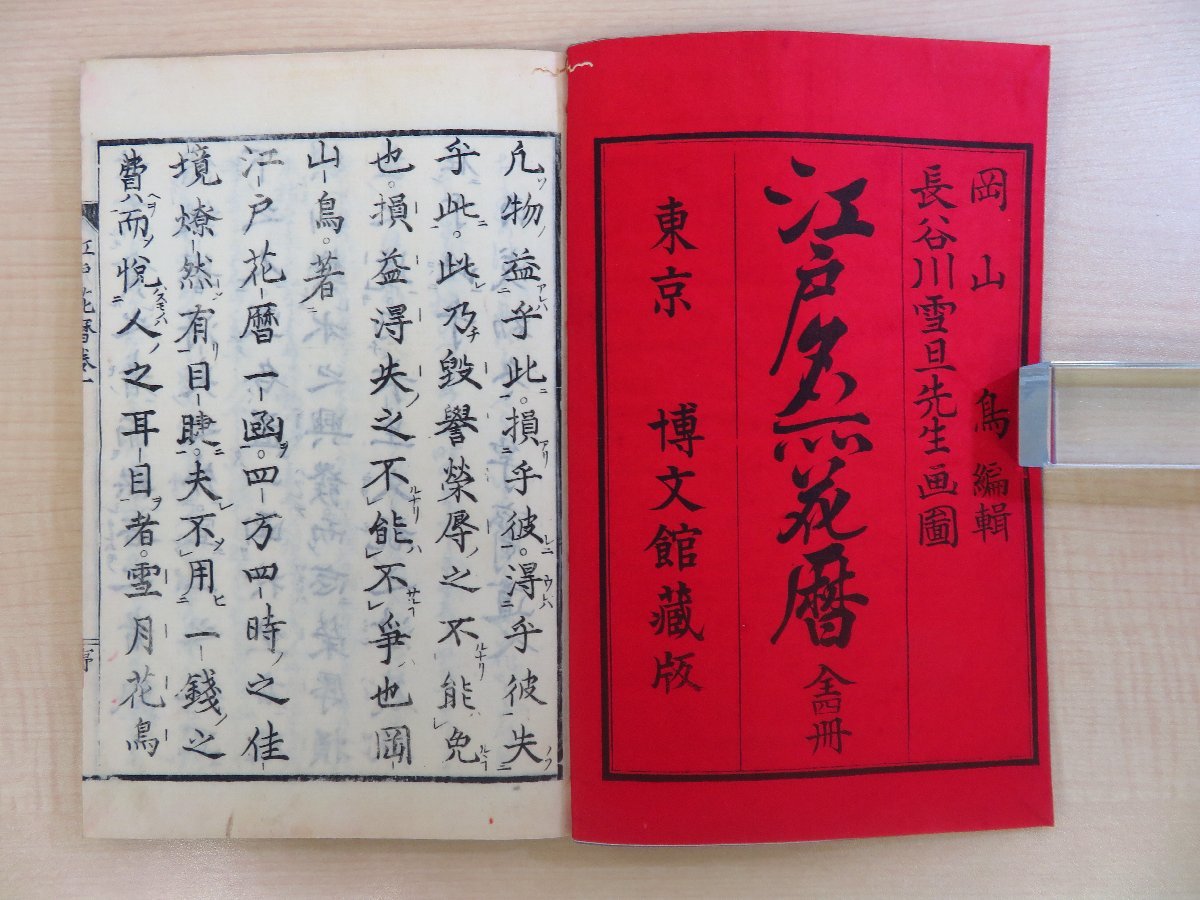 岡山鳥編輯
長谷川雪旦先生画圖
江戸名所花暦
全四冊
東京 博文館藏版
凡物益乎此。損乎彼。得乎彼失
乎此。此乃毀譽榮辱之不能免
也。損益得失之不能不爭也岡
山鳥。著
江戸花暦一函。四方四時之佳
境燎然有目睫。夫不用一錢之
費而悅人之耳目者。雪月花鳥
江戸花暦巻一
序